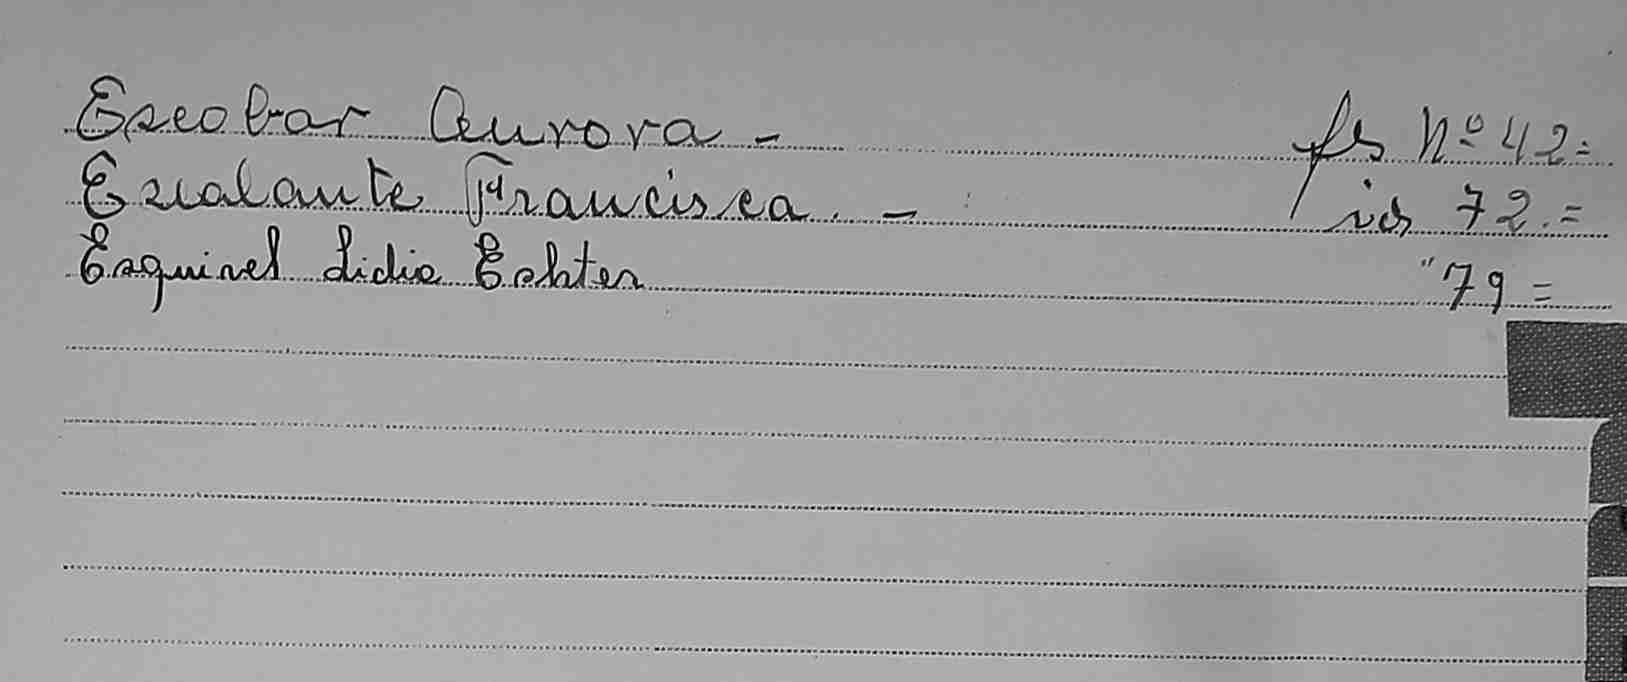 Escobar Aurora - fs Nº 42=
Escalante Francisca. - 72.=
Esquivel Lidia Eshter " 79=